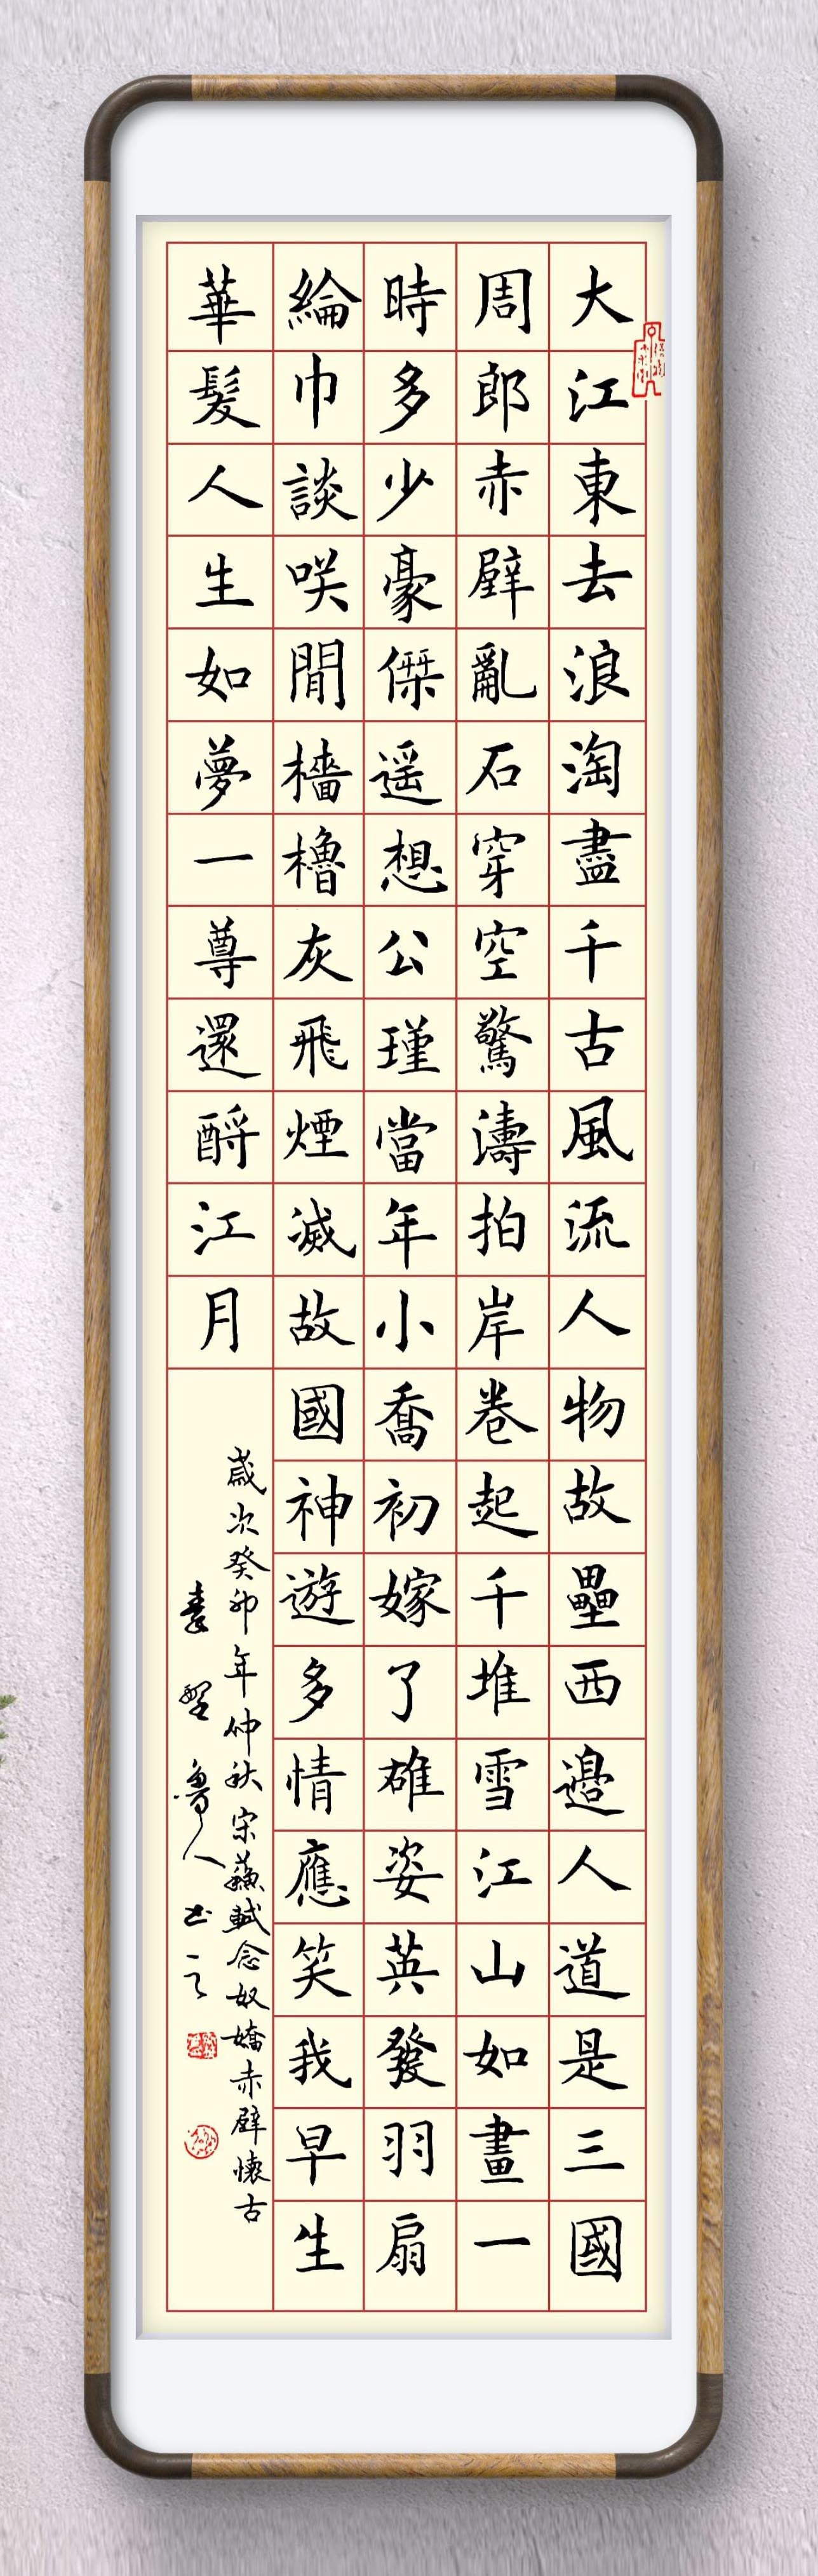 大江東去浪淘盡千古風流人物故壘西邊人道是三國
周郎赤壁亂石穿空驚濤拍岸卷起千堆雪江山如畫一
時多少豪傑遥想公瑾當年小喬初嫁了雄姿英發羽扇
綸巾談咲間檣櫓灰飛煙滅故國神遊多情應笑我早生
華髮人生如夢一尊還酹江月
歲次癸卯年仲秋宋蘇軾念奴嬌赤壁懷古
魯人书之